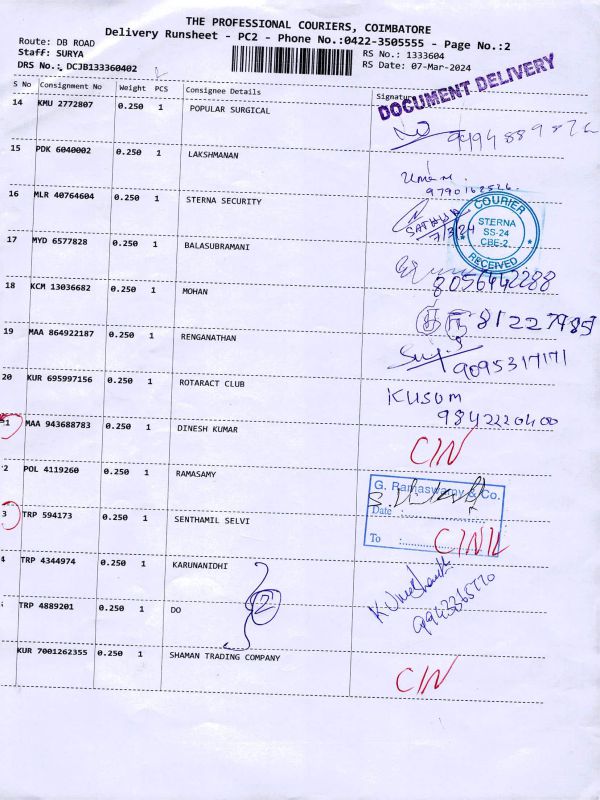 THE PROFESSIONAL COURIERS, COIMBATORE
Delivery Runsheet - PC2 - Phone No.:0422-3505555 - Page No.:2
Route: DB ROAD
Staff: SURYA
DRS No.: DCJB133360402
RS No.: 1333604
RS Date: 07-Mar-2024
DOCUMENT DELIVERY
S No Consignment No Weight PCS Consignee Details Signature
14 KMU 2772807 0.250 1 POPULAR SURGICAL
15 PDK 6040002 0.250 1 LAKSHMANAN
Uma M.
9790162526
16 MLR 40764604 0.250 1 STERNA SECURITY
SATHYA
7/3/24
COURIER
STERNA
SS-24
CBE-2
RECEIVED
17 MYD 6577828 0.250 1 BALASUBRAMANI
8056442288
18 KCM 13036682 0.250 1 MOHAN
19 MAA 864922187 0.250 1 RENGANATHAN
9095317171
20 KUR 695997156 0.250 1 ROTARACT CLUB
Kusum
9842220400
1 MAA 943688783 0.250 1 DINESH KUMAR
C/N
2 POL 4119260 0.250 1 RAMASAMY
G. Ramaswamy & Co.
Date :
To :
3 TRP 594173 0.250 1 SENTHAMIL SELVI
4 TRP 4344974 0.250 1 KARUNANIDHI
2
TRP 4889201 0.250 1 DO
KUR 7001262355 0.250 1 SHAMAN TRADING COMPANY
C/N